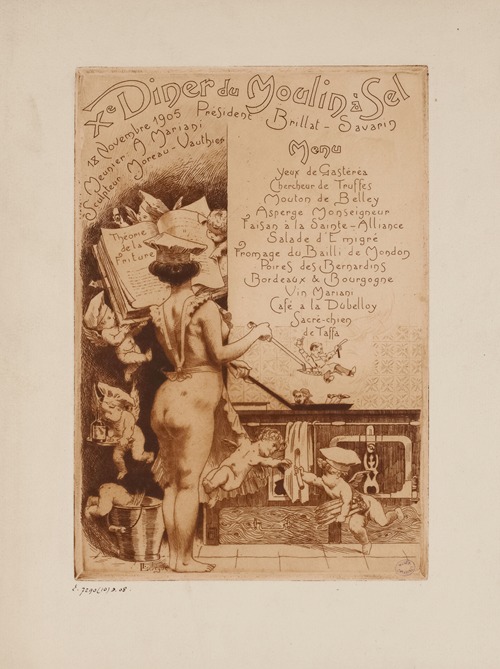 Xe Diner du Moulin à Sel
18 Novembre 1905 Président Brillat-Savarin
Meunier A Mariani
Sculpteur Moreau-Vauthier
Menu
Yeux de Gasteréa
Chercheur de Truffes
Mouton de Belley
Asperge Monseigneur
Faisan à la Sainte-Alliance
Salade d'Emigré
Fromage du Bailli de Mondon
Poires des Bernardins
Bordeaux & Bourgogne
Vin Mariani
Café à la Dubelloy
Sacré-chien
de Taffa
Théorie
de la
Friture